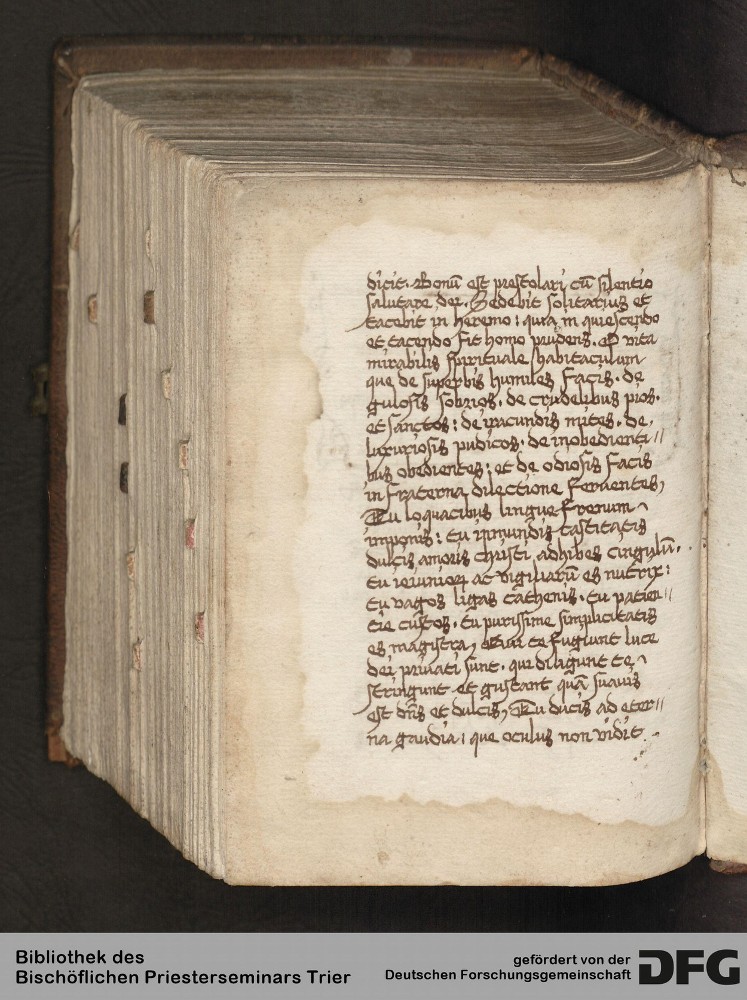 dicit. Bonū est prestolari cū silentio
salutare dei. Sedebit solitarius et
tacebit in heremo: quia in quiescendo
et tacendo fit homo prudens. O vita
mirabilis spirituale habitaculum
que de superbis humiles facis. de
gulosis sobrios. de crudelibus pios.
et sanctos: de iracundis mites. de
luxuriosis pudicos. de inobedienti//
bus obedientes: et de odiosis facis
in fraterna dilectione feruentes,
Tu loquacibus lingue frenum
imponis: tu inmundis castitatis
dulcis amoris christi adhibes cingulū.
tu ieiunioꝝ ac vigiliarū es nutrix:
tu vagos ligas cathenis. tu patien//
tie custos. tu purissime simplicitatis
es magistra, Qui te fugiunt luce
dei priuati sunt. qui diligunt te
stringunt et gustant quā suauis
est dn̄s et dulcis, Tu ducis ad eter//
na gaudia: que oculus non vidit.
Bibliothek des
Bischöflichen Priesterseminars Trier
gefördert von der
Deutschen Forschungsgemeinschaft DFG